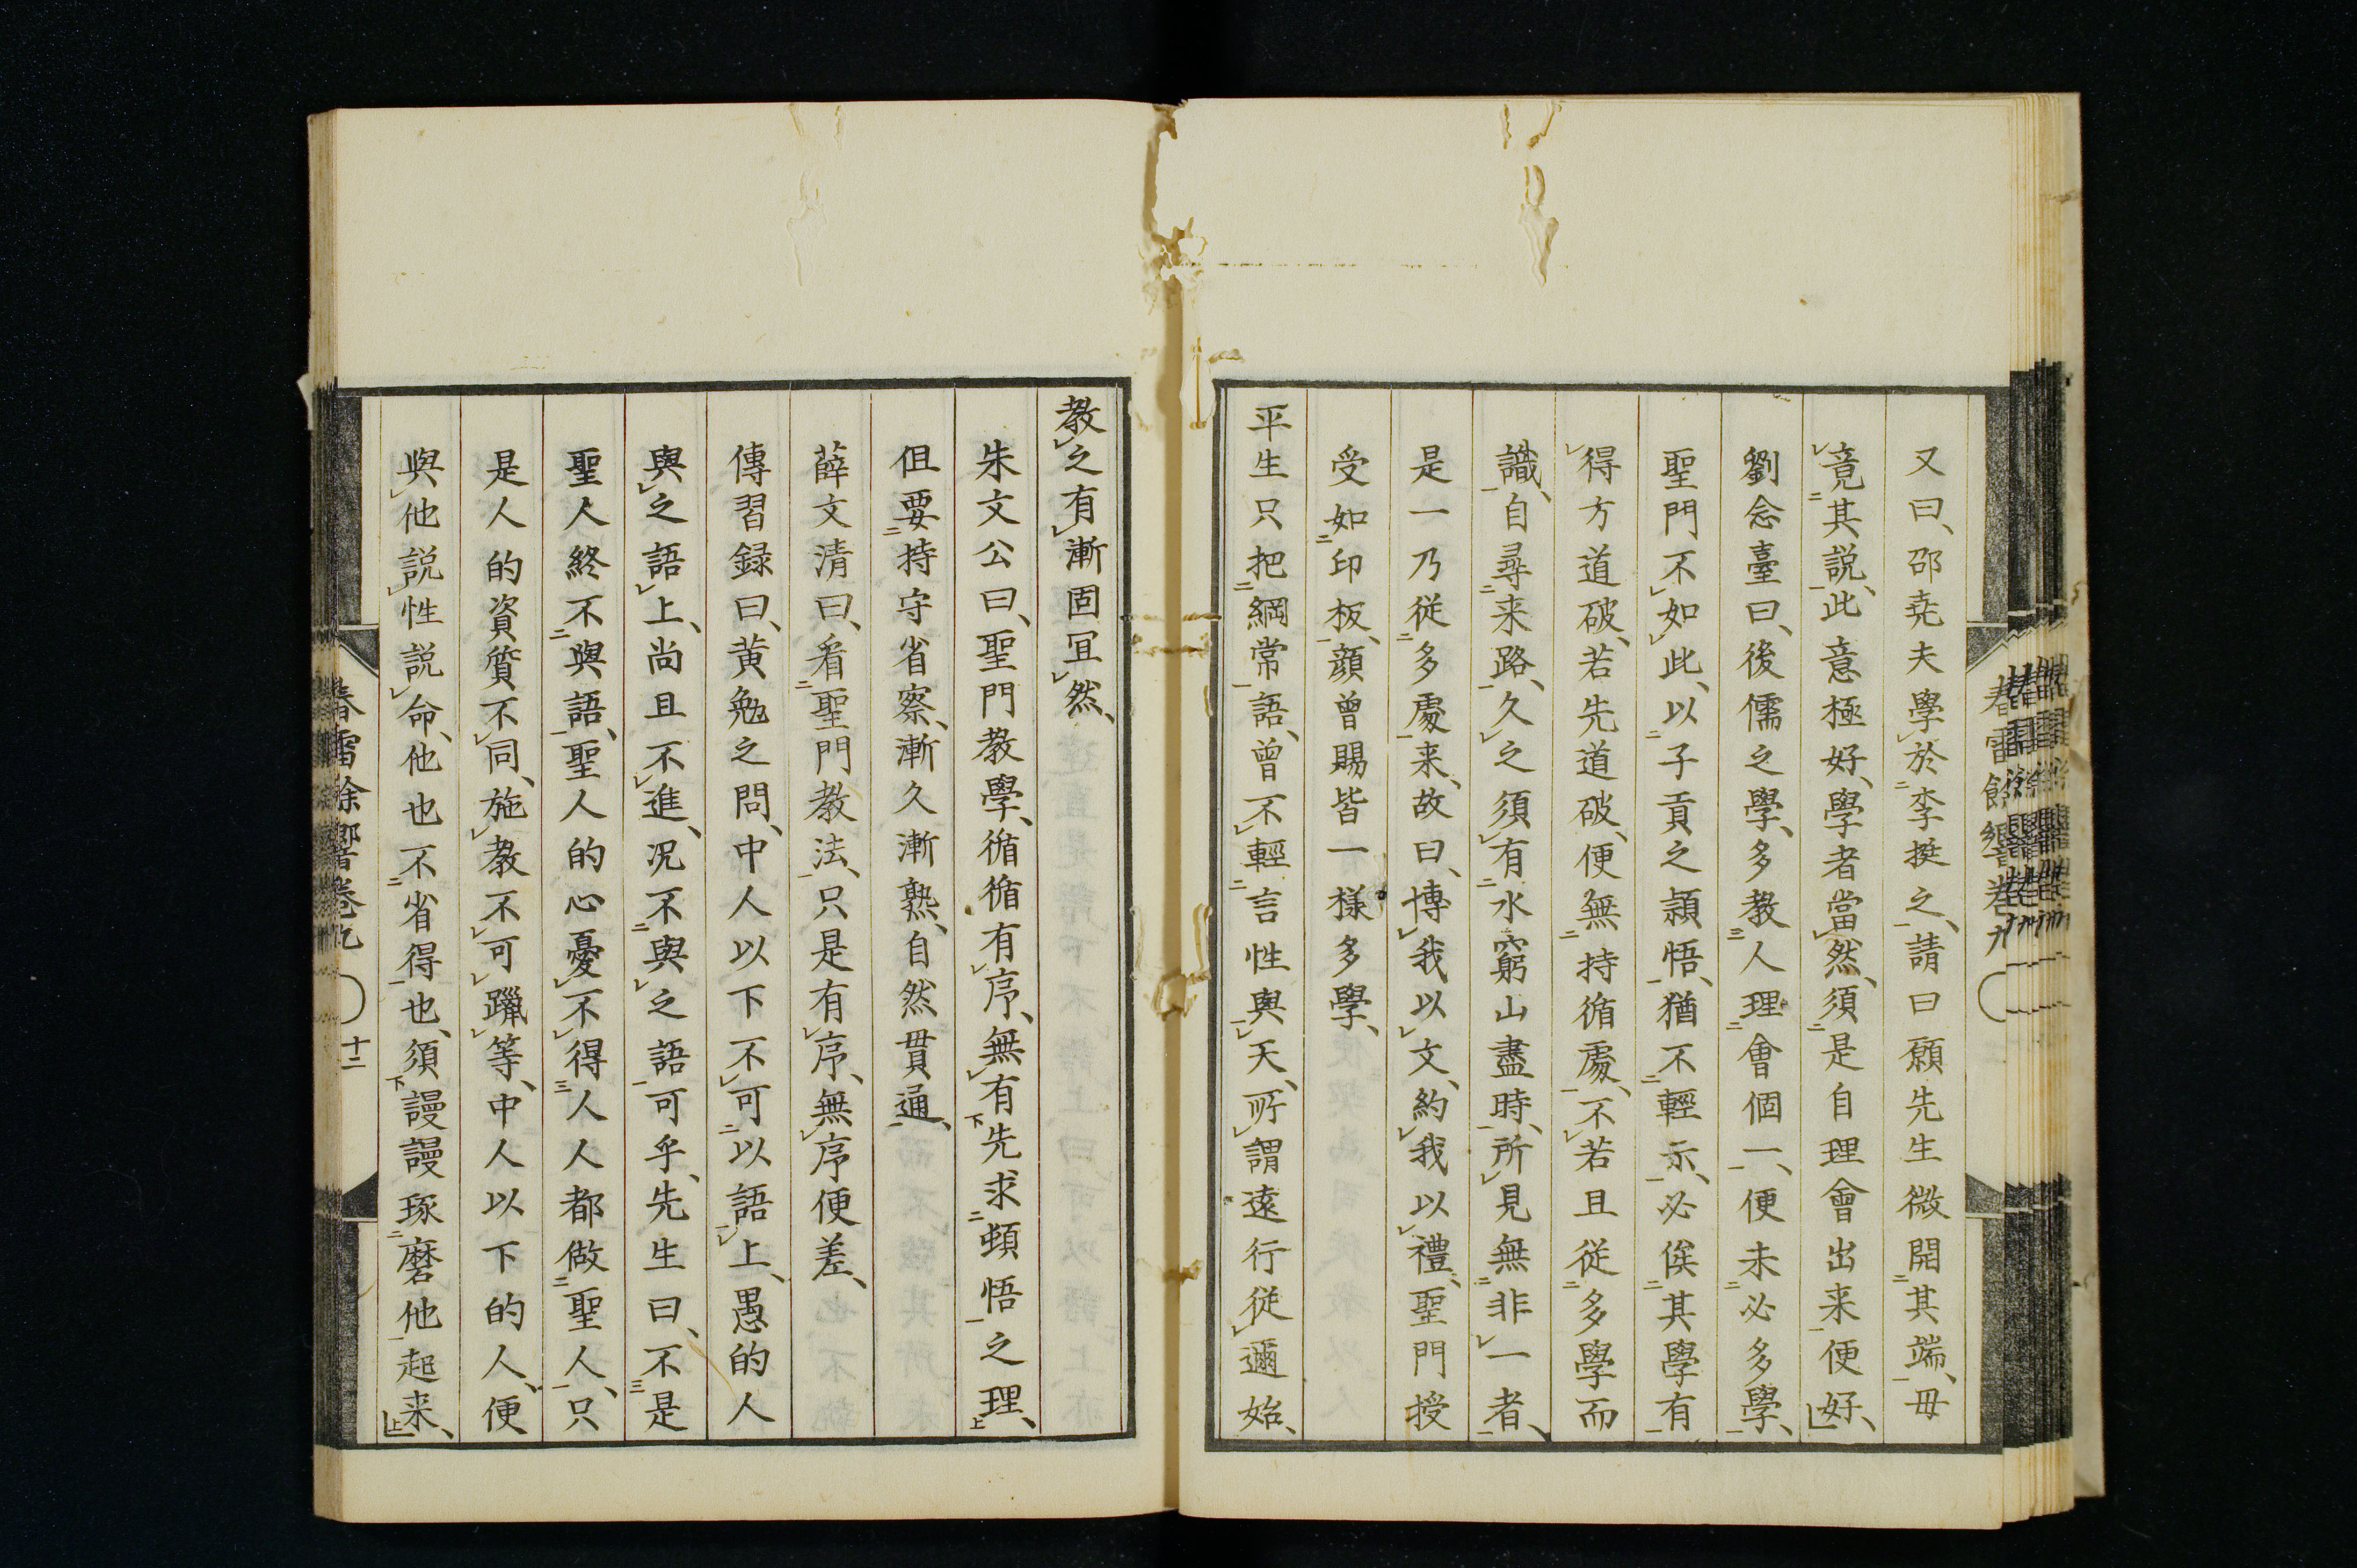 又曰、邵堯夫學於李挺之、請曰願先生微開其端、毋
竟其説、此意極好、學者當然、須是自理會出来便好、
劉念臺曰、後儒之學、多教人理會個一、便未必多學、
聖門不如此、以子貢之頴悟、猶不輕示、必俟其學有
得方道破、若先道破、便無持循處、不若且從多學而
識、自尋来路、久之須有水窮山盡時、所見無非一者、
是一乃從多處来、故曰、博我以文、約我以禮、聖門授
受如印板、顔曾賜皆一樣多學、
平生只把綱常語、曾不輕言性與天、所謂遠行從邇始、
教之有漸固冝然、
朱文公曰、聖門教學、循循有序、無有先求頓悟之理、
但要持守省察、漸久漸熟、自然貫通、
薛文清曰、看聖門教法、只是有序、無序便差、
傳習録曰、黄勉之問、中人以下不可以語上、愚的人
與之語上、尚且不進、况不與之語可乎、先生曰、不是
聖人終不與語、聖人的心憂不得人人都做聖人、只
是人的資質不同、施教不可躐等、中人以下的人、便
與他説性説命、他也不省得也、須謾謾琢磨他起来、
春雷餘響巻九
十二